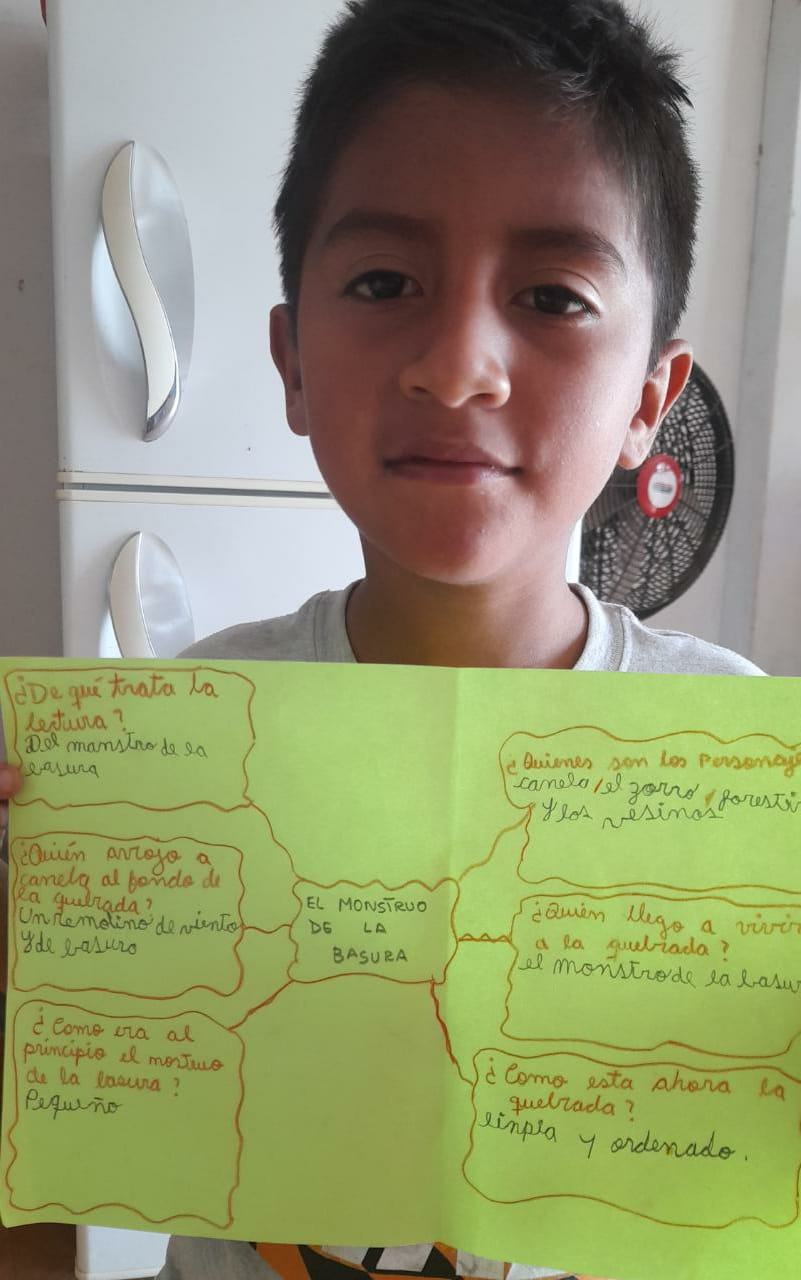 ¿De qué trata la
lectura?
Del manstro de la
basura
¿Quién arrojo a
canela al fondo de
la quebrada?
Un remolino de viento
y de basuro
¿Como era al
principio el mostruo
de la basura?
Pequeño
EL MONSTRUO
DE LA
BASURA
¿Quienes son los Personaje
canela, el zorro, foresti
y los vesinos
¿Quién llego a vivir
a la quebrada?
el monstro de la basu
¿Como esta ahora la
quebrada?
linpia y ordenado.